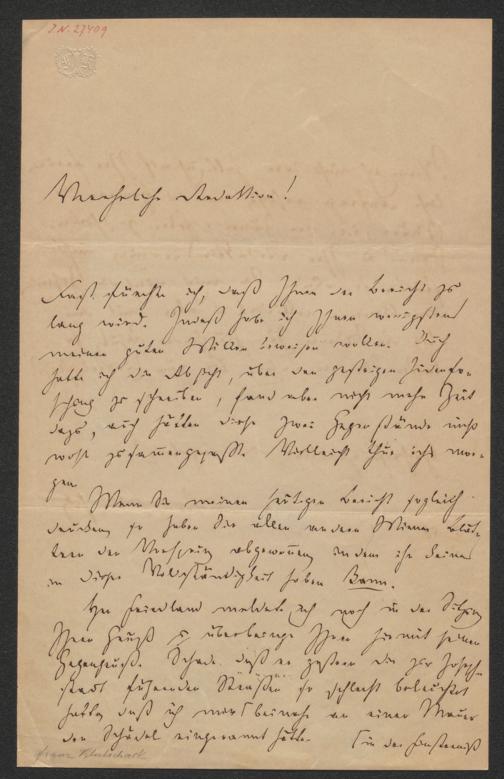 I.N. 27409
Verehrliche Redaktion!
Fast fürchte ich, daß Ihnen der Bericht zu
lang wird. Indeß habe ich Ihnen wenigstens
meinen guten Willen beweisen wollen. Auch
hatte ich die Absicht, über den gestrigen
zu schreiben, fand aber nicht mehr Zeit
dazu, auch hätten diese zwei Gegenstände nicht
wohl zusammengepaßt. Vielleicht thue ich's mor-
gen.
Wenn Sie meinen heutigen Bericht sogleich
drucken, so haben Sie allen andern Wiener Blät-
tern den Vorsprung abgewonnen, indem ihn keines
in dieser Vollständigkeit haben kann.
Herr Friedland meldet sich noch in der Sitzung
Ihren Gruß zu überbringen Ihnen hiermit seinen
Gegengruß. Schade, daß er gestern die zur Joseph-
stadt führenden Straßen so schlecht beleuchtet
hatte, daß ich mir beinahe an einer Mauer
den Schädel eingerannt hätte. in der Finsterniß